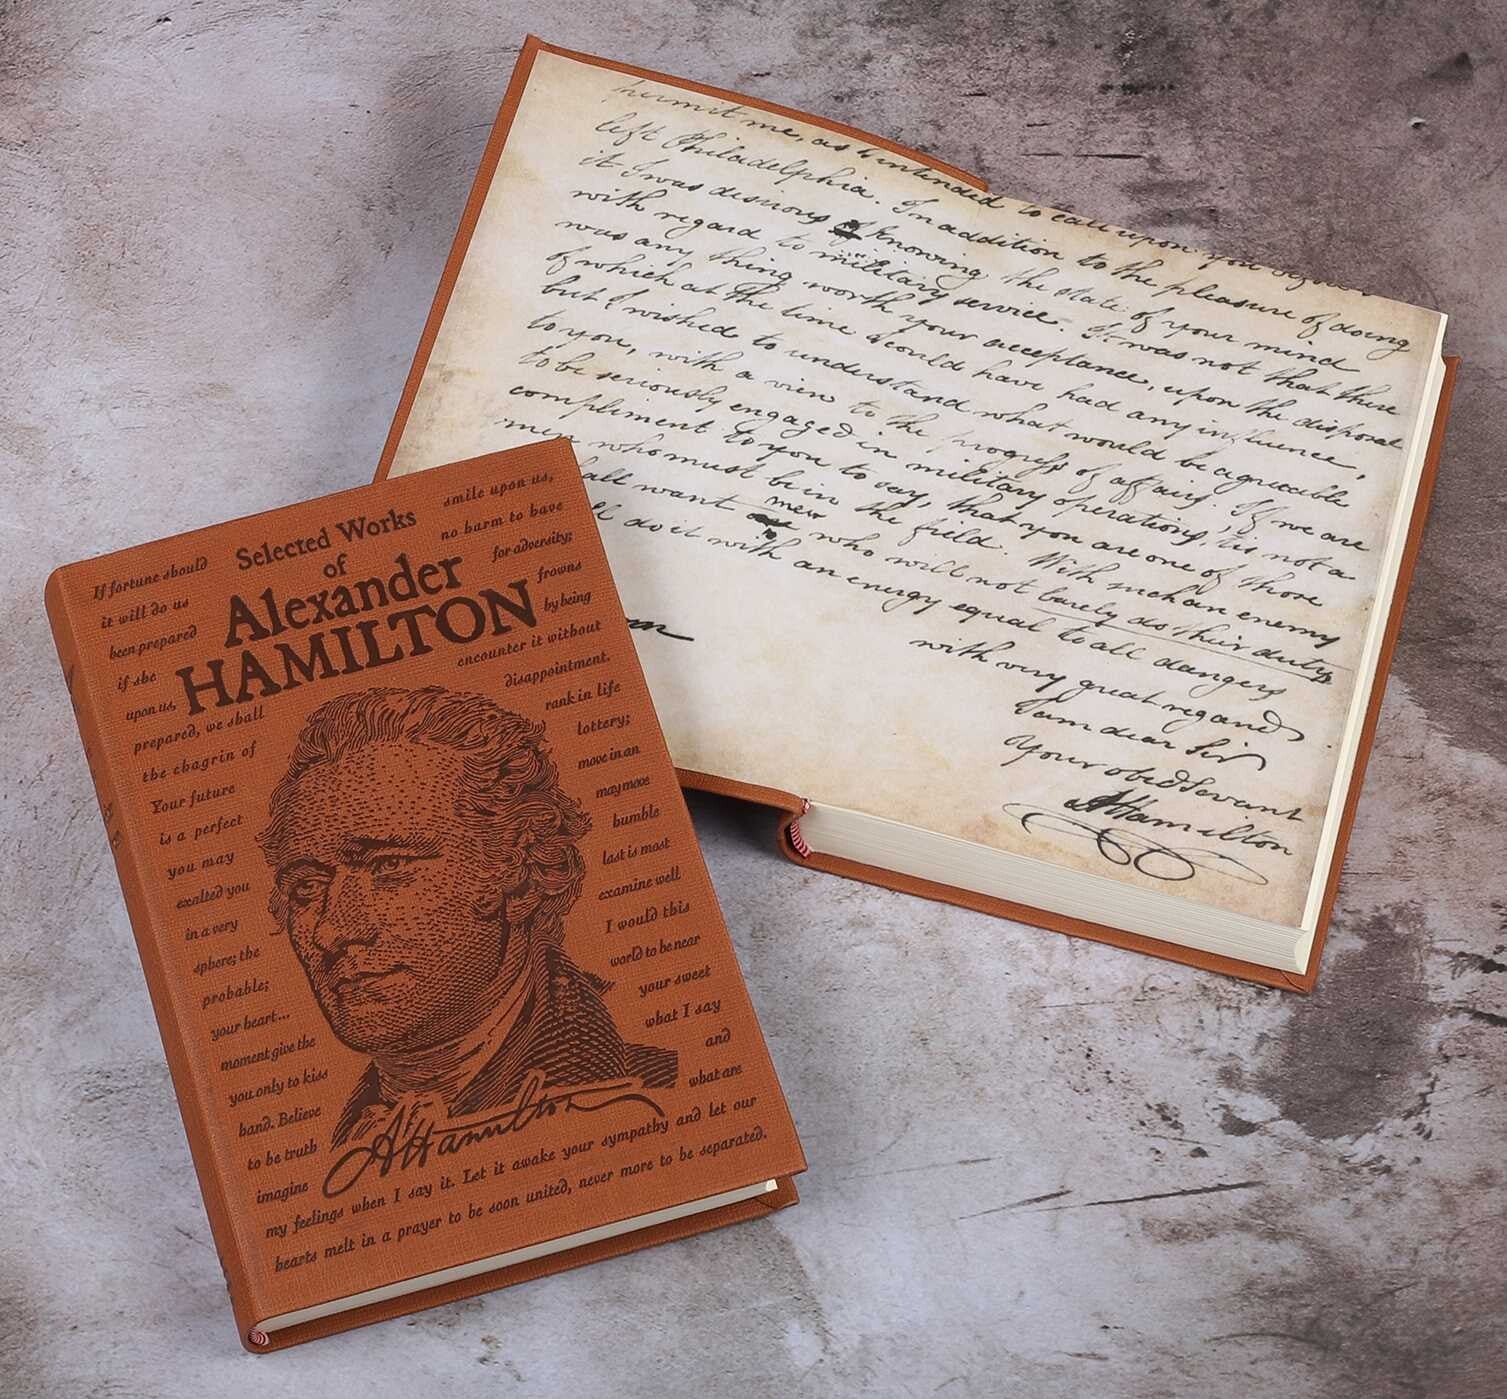 Selected Works
of
Alexander
HAMILTON
If fortune should smile upon us,
it will do us no harm to have
been prepared for adversity;
if she frowns
upon us, by being
prepared, we shall encounter it without
the chagrin of disappointment.
Your future rank in life
is a perfect lottery;
you may move in an
exalted you may move
in a very humble
sphere; the last is most
probable; examine well
your heart... I would this
moment give the world to be near
you only to kiss your sweet
hand. Believe what I say
to be truth and
imagine what are
my feelings when I say it. Let it awake your sympathy and let our
hearts melt in a prayer to be soon united, never more to be separated.
AHamilton
permit me, as I intended to call upon you before I
left Philadelphia. In addition to the pleasure of doing
it I was desirous of knowing the state of your mind
with regard to military service. It was not that there
was any thing worth your acceptance, upon the disposal
of which at the time I could have had any influence,
but I wished to understand what would be agreeable
to you, with a view to the progress of affairs. If we are
to be seriously engaged in military operations, tis not a
compliment to you to say, that you are one of those
men who must be in the field. With such an enemy
all want men who will not barely do their duty
do it with an energy equal to all dangers
with very great regard
I am dear Sir
Your obed Servant
AHamilton